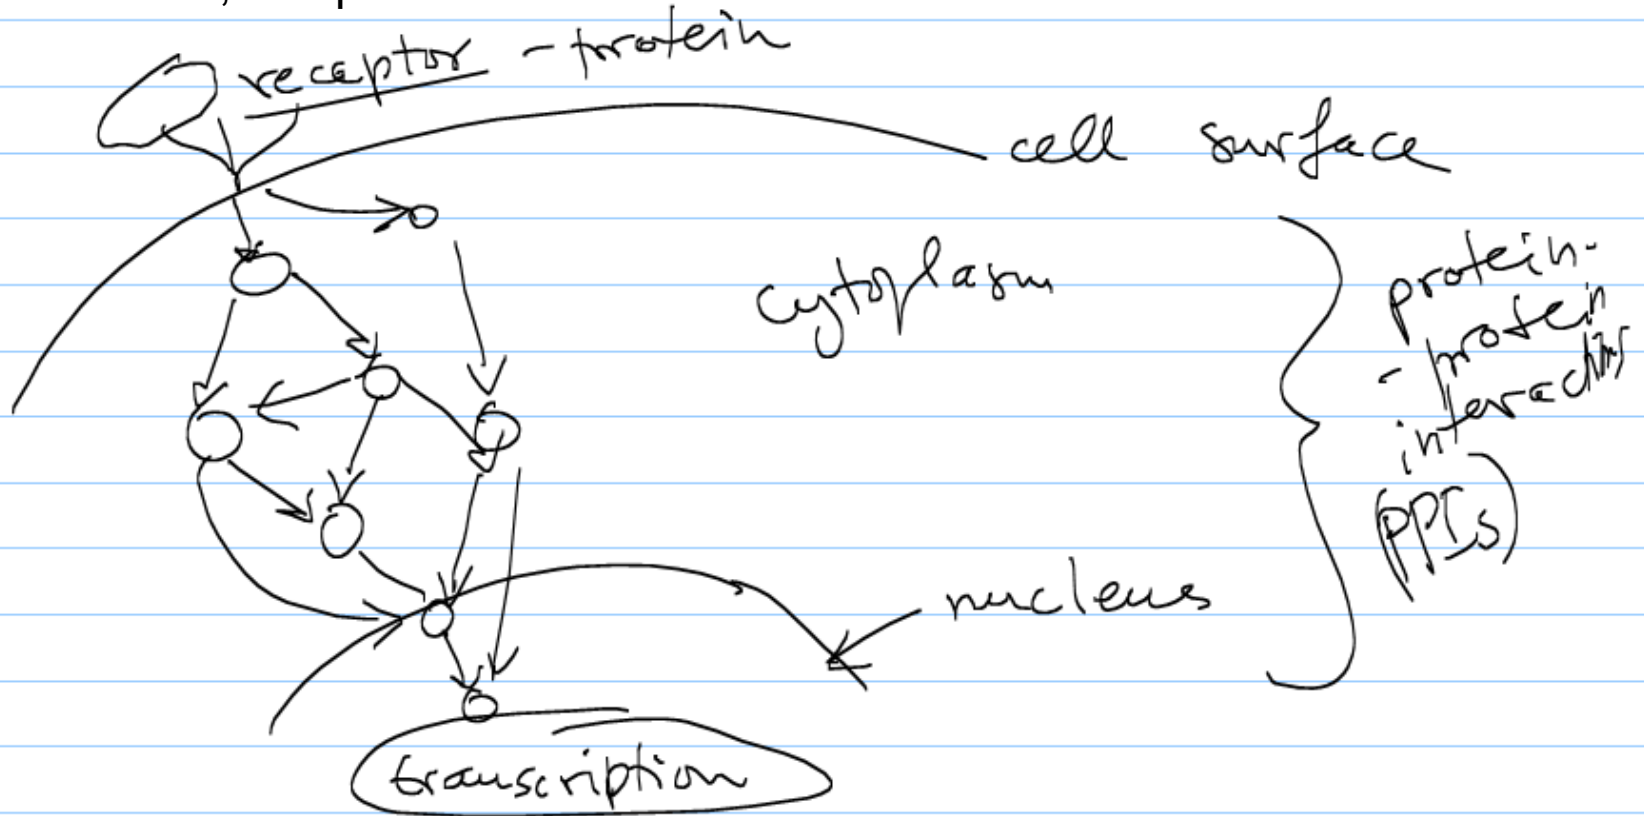 receptor - protein
cell surface
cytoplasm
protein-
- protein
interactions
(PPIs)
nucleus
transcription